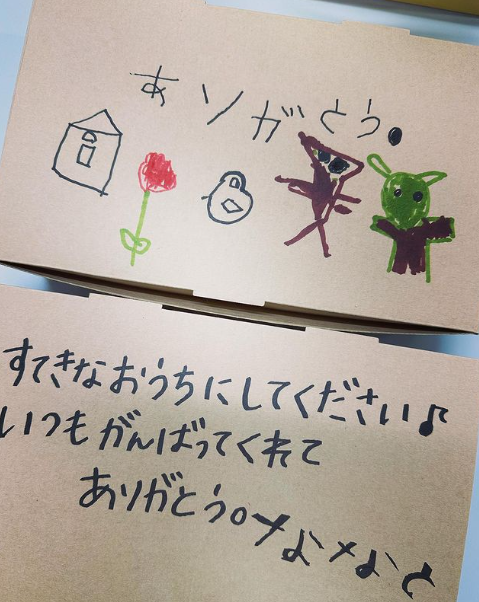 ありがとう。
すてきなおうちにしてください♪
いつもがんばってくれて
ありがとう。